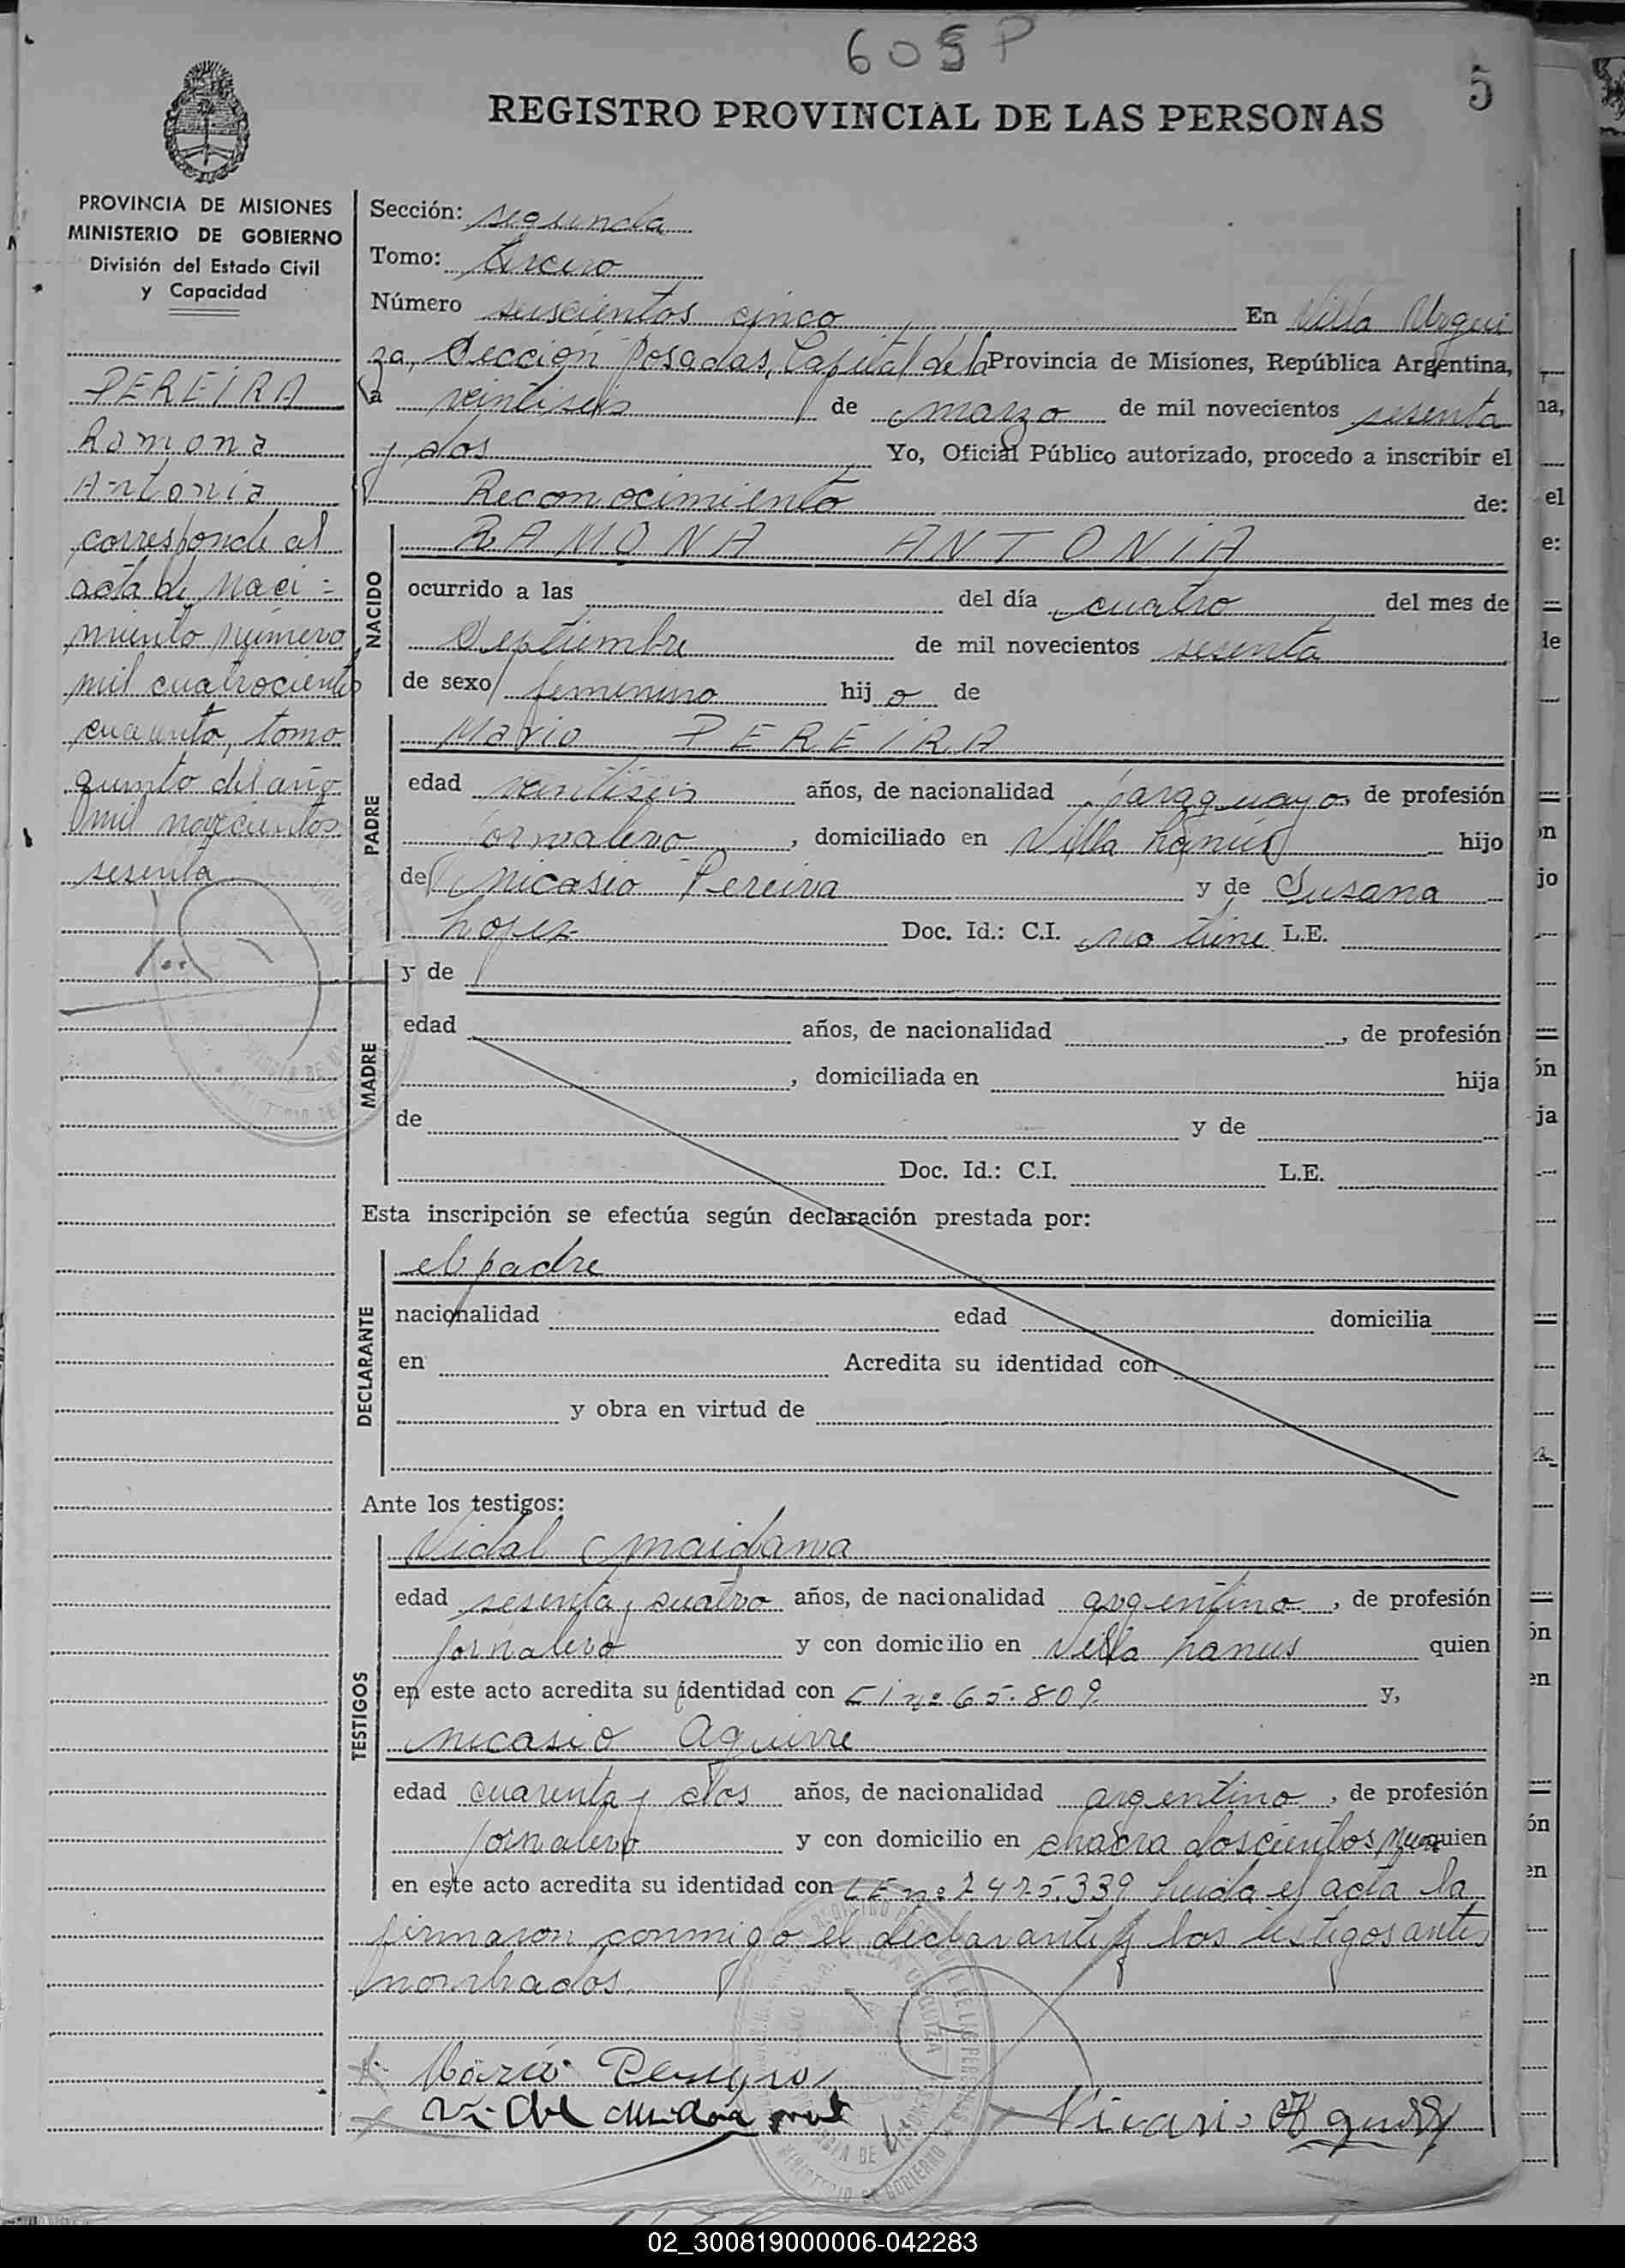 605 P
5
REGISTRO PROVINCIAL DE LAS PERSONAS
PROVINCIA DE MISIONES
MINISTERIO DE GOBIERNO
División del Estado Civil
y Capacidad
PEREIRA
Ramona
Antonia
corresponde al
acta de Naci=
miento número
mil cuatrocientos
cuarenta, tomo
quinto del año
mil novecientos
sesenta
Sección: segunda
Tomo: tercero
Número seiscientos cinco En Villa Urqui
za, Sección Posadas, Capital de la Provincia de Misiones, República Argentina,
a veintiseis de marzo de mil novecientos sesenta
y dos Yo, Oficial Público autorizado, procedo a inscribir el
Reconocimiento de:
NACIDO
RAMONA ANTONIA
ocurrido a las del día cuatro del mes de
Septiembre de mil novecientos sesenta
de sexo femenino hij o de
PADRE
Mario PEREIRA
edad veintiseis años, de nacionalidad paraguayo, de profesión
jornalero, domiciliado en Villa Lanús hijo
de Nicasio Pereira y de Susana
Lopez Doc. Id.: C.I. no tiene L.E.
MADRE
y de
edad años, de nacionalidad , de profesión
, domiciliada en hija
de y de
Doc. Id.: C.I. L.E.
Esta inscripción se efectúa según declaración prestada por:
DECLARANTE
el padre
nacionalidad edad domicilia
en Acredita su identidad con
y obra en virtud de
Ante los testigos:
TESTIGOS
Vidal Maidana
edad sesenta y cuatro años, de nacionalidad argentino, de profesión
jornalero y con domicilio en Villa Lanus quien
en este acto acredita su identidad con CI nº 65.809 y,
Nicasio Aguirre
edad cuarenta y dos años, de nacionalidad argentino, de profesión
jornalero y con domicilio en chacra doscientos quien
en este acto acredita su identidad con LE nº 2475.339 Leida el acta la
firmaron conmigo el declarante y los testigos antes
nombrados.
Mario
02_300819000006-042283